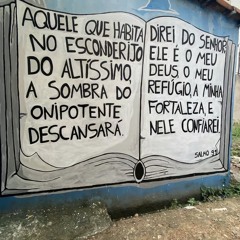 AQUELE QUE HABITA
NO ESCONDERIJO
DO ALTÍSSIMO,
A SOMBRA DO
ONIPOTENTE
DESCANSARÁ.
DIREI DO SENHOR
ELE É O MEU
DEUS, O MEU
REFÚGIO, A MINHA
FORTALEZA, E
NELE CONFIAREI.
SALMO 91